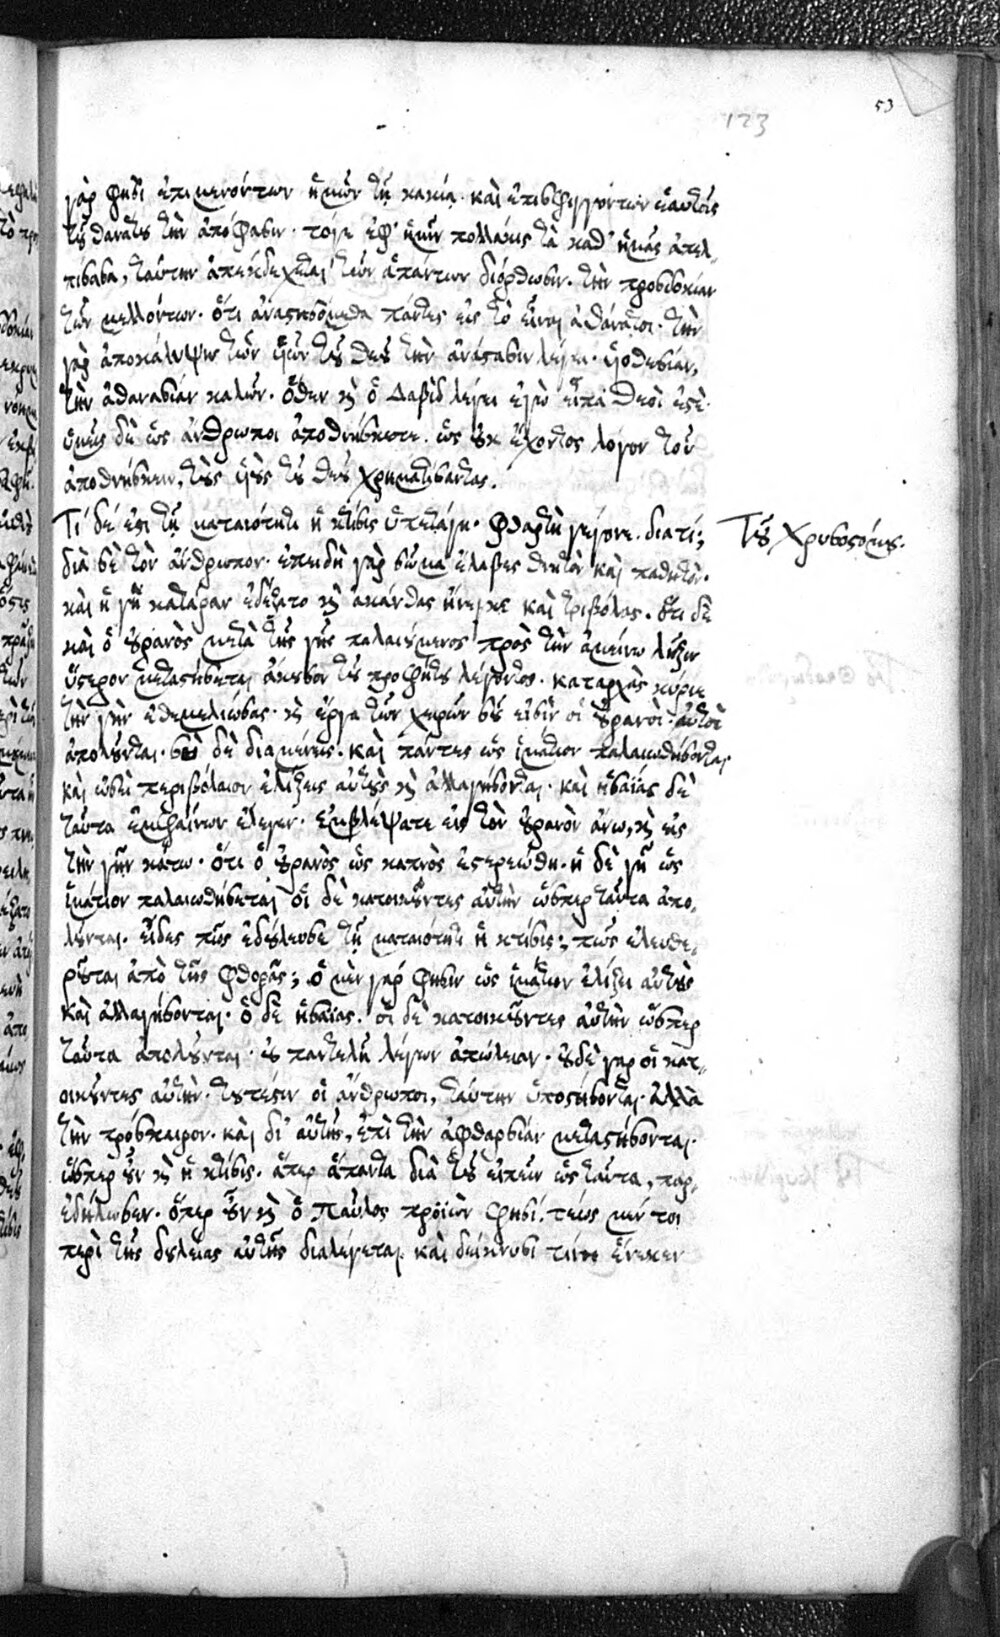 53
123
γὰρ φησὶ ἐπιμενόντων ἡμῶν τῇ κακίᾳ. καὶ ἐπισφιγγόντων ἑαυτοῖς
τῆς θανάτου τὴν ἀπόφασιν. τόγε ἐφ' ἡμῖν πολλάκις τὰ καθ' ἡμᾶς ἀπελ-
πίσασα, ταύτην ἀπεκδέχεται τῶν ἁπάντων διόρθωσιν. τὴν προσδοκίαν
τῶν μελλόντων. ὅτι ἀναστησόμεθα πάντες εἰς τὸ εἶναι ἀθάνατοι. τὴν
γὰρ ἀποκάλυψιν τῶν υἱῶν τοῦ θεοῦ τὴν ἀνάστασιν λέγει. υἱοθεσίαν,
τὴν ἀθανασίαν καλῶν. ὅθεν καὶ ὁ Δαβὶδ λέγει ἐγὼ εἶπα θεοὶ ἐστέ.
ὑμεῖς δὲ ὡς ἄνθρωποι ἀποθνήσκετε. ὡς οὐκ ἔχοντος λόγον τοῦ
ἀποθνήσκειν, τοὺς υἱοὺς τοῦ θεοῦ χρηματίσαντας.
Τί δέ ἐστι τῇ ματαιότητι ἡ κτίσις ὑπετάγη. φθαρτὴ γέγονε. διατί;
Τοῦ Χρυσοστόμου.
διὰ σὲ τὸν ἄνθρωπον. ἐπειδὴ γὰρ σῶμα ἔλαβες θνητὸν καὶ παθητόν.
καὶ ἡ γῆ κατάραν ἐδέξατο καὶ ἀκάνθας ἤνεγκε καὶ τριβόλους. ὅτι δὲ
καὶ ὁ οὐρανὸς μετὰ τῆς γῆς παλαιούμενος πρὸς τὴν ἀμείνω λῆξιν
ὕστερον μεταστήσεται ἄκουσον τοῦ προφήτου λέγοντος. καταρχὰς κύριε
τὴν γῆν ἐθεμελίωσας. καὶ ἔργα τῶν χειρῶν σου εἰσὶν οἱ οὐρανοί. αὐτοὶ
ἀπολοῦνται. σὺ δὲ διαμένεις. καὶ πάντες ὡς ἱμάτιον παλαιωθήσονται
καὶ ὡσεὶ περιβόλαιον ἑλίξεις αὐτοὺς καὶ ἀλλαγήσονται. καὶ ἡσαΐας δὲ
ταῦτα ἐμφαίνων ἔλεγεν. ἐμβλέψατε εἰς τὸν οὐρανὸν ἄνω, καὶ εἰς
τὴν γῆν κάτω. ὅτι ὁ οὐρανὸς ὡς καπνὸς ἐστερεώθη. ἡ δὲ γῆ ὡς
ἱμάτιον παλαιωθήσεται οἱ δὲ κατοικοῦντες αὐτὴν ὥσπερ ταῦτα ἀπο-
λοῦνται. εἶδες πῶς ἐδούλευσε τῇ ματαιότητι ἡ κτίσις; πῶς ἐλευθε-
ροῦται ἀπὸ τῆς φθορᾶς; ὁ μὲν γάρ φησιν ὡς ἱμάτιον ἑλίξει αὐτοὺς
καὶ ἀλλαγήσονται. ὁ δὲ ἡσαΐας. οἱ δὲ κατοικοῦντες αὐτὴν ὥσπερ
ταῦτα ἀπολοῦνται. οὐ παντελῆ λέγων ἀπώλειαν. οὐδὲ γὰρ οἱ κατ-
οικοῦντες αὐτὴν. τουτέστιν οἱ ἄνθρωποι, ταύτην ὑποστήσονται. ἀλλὰ
τὴν πρόσκαιρον. καὶ δι' αὐτῆς, ἐπὶ τὴν ἀφθαρσίαν μεταστήσονται.
ὥσπερ οὖν καὶ ἡ κτίσις. ἅπερ ἅπαντα διὰ τοῦ εἰπεῖν ὡς ταῦτα, παρ-
εδήλωσεν. ὅπερ οὖν καὶ ὁ Παῦλος προϊὼν φησί. τέως μέν τοι
περὶ τῆς δουλείας αὐτῆς διαλέγεται καὶ δείκνυσι τίνος ἕνεκεν